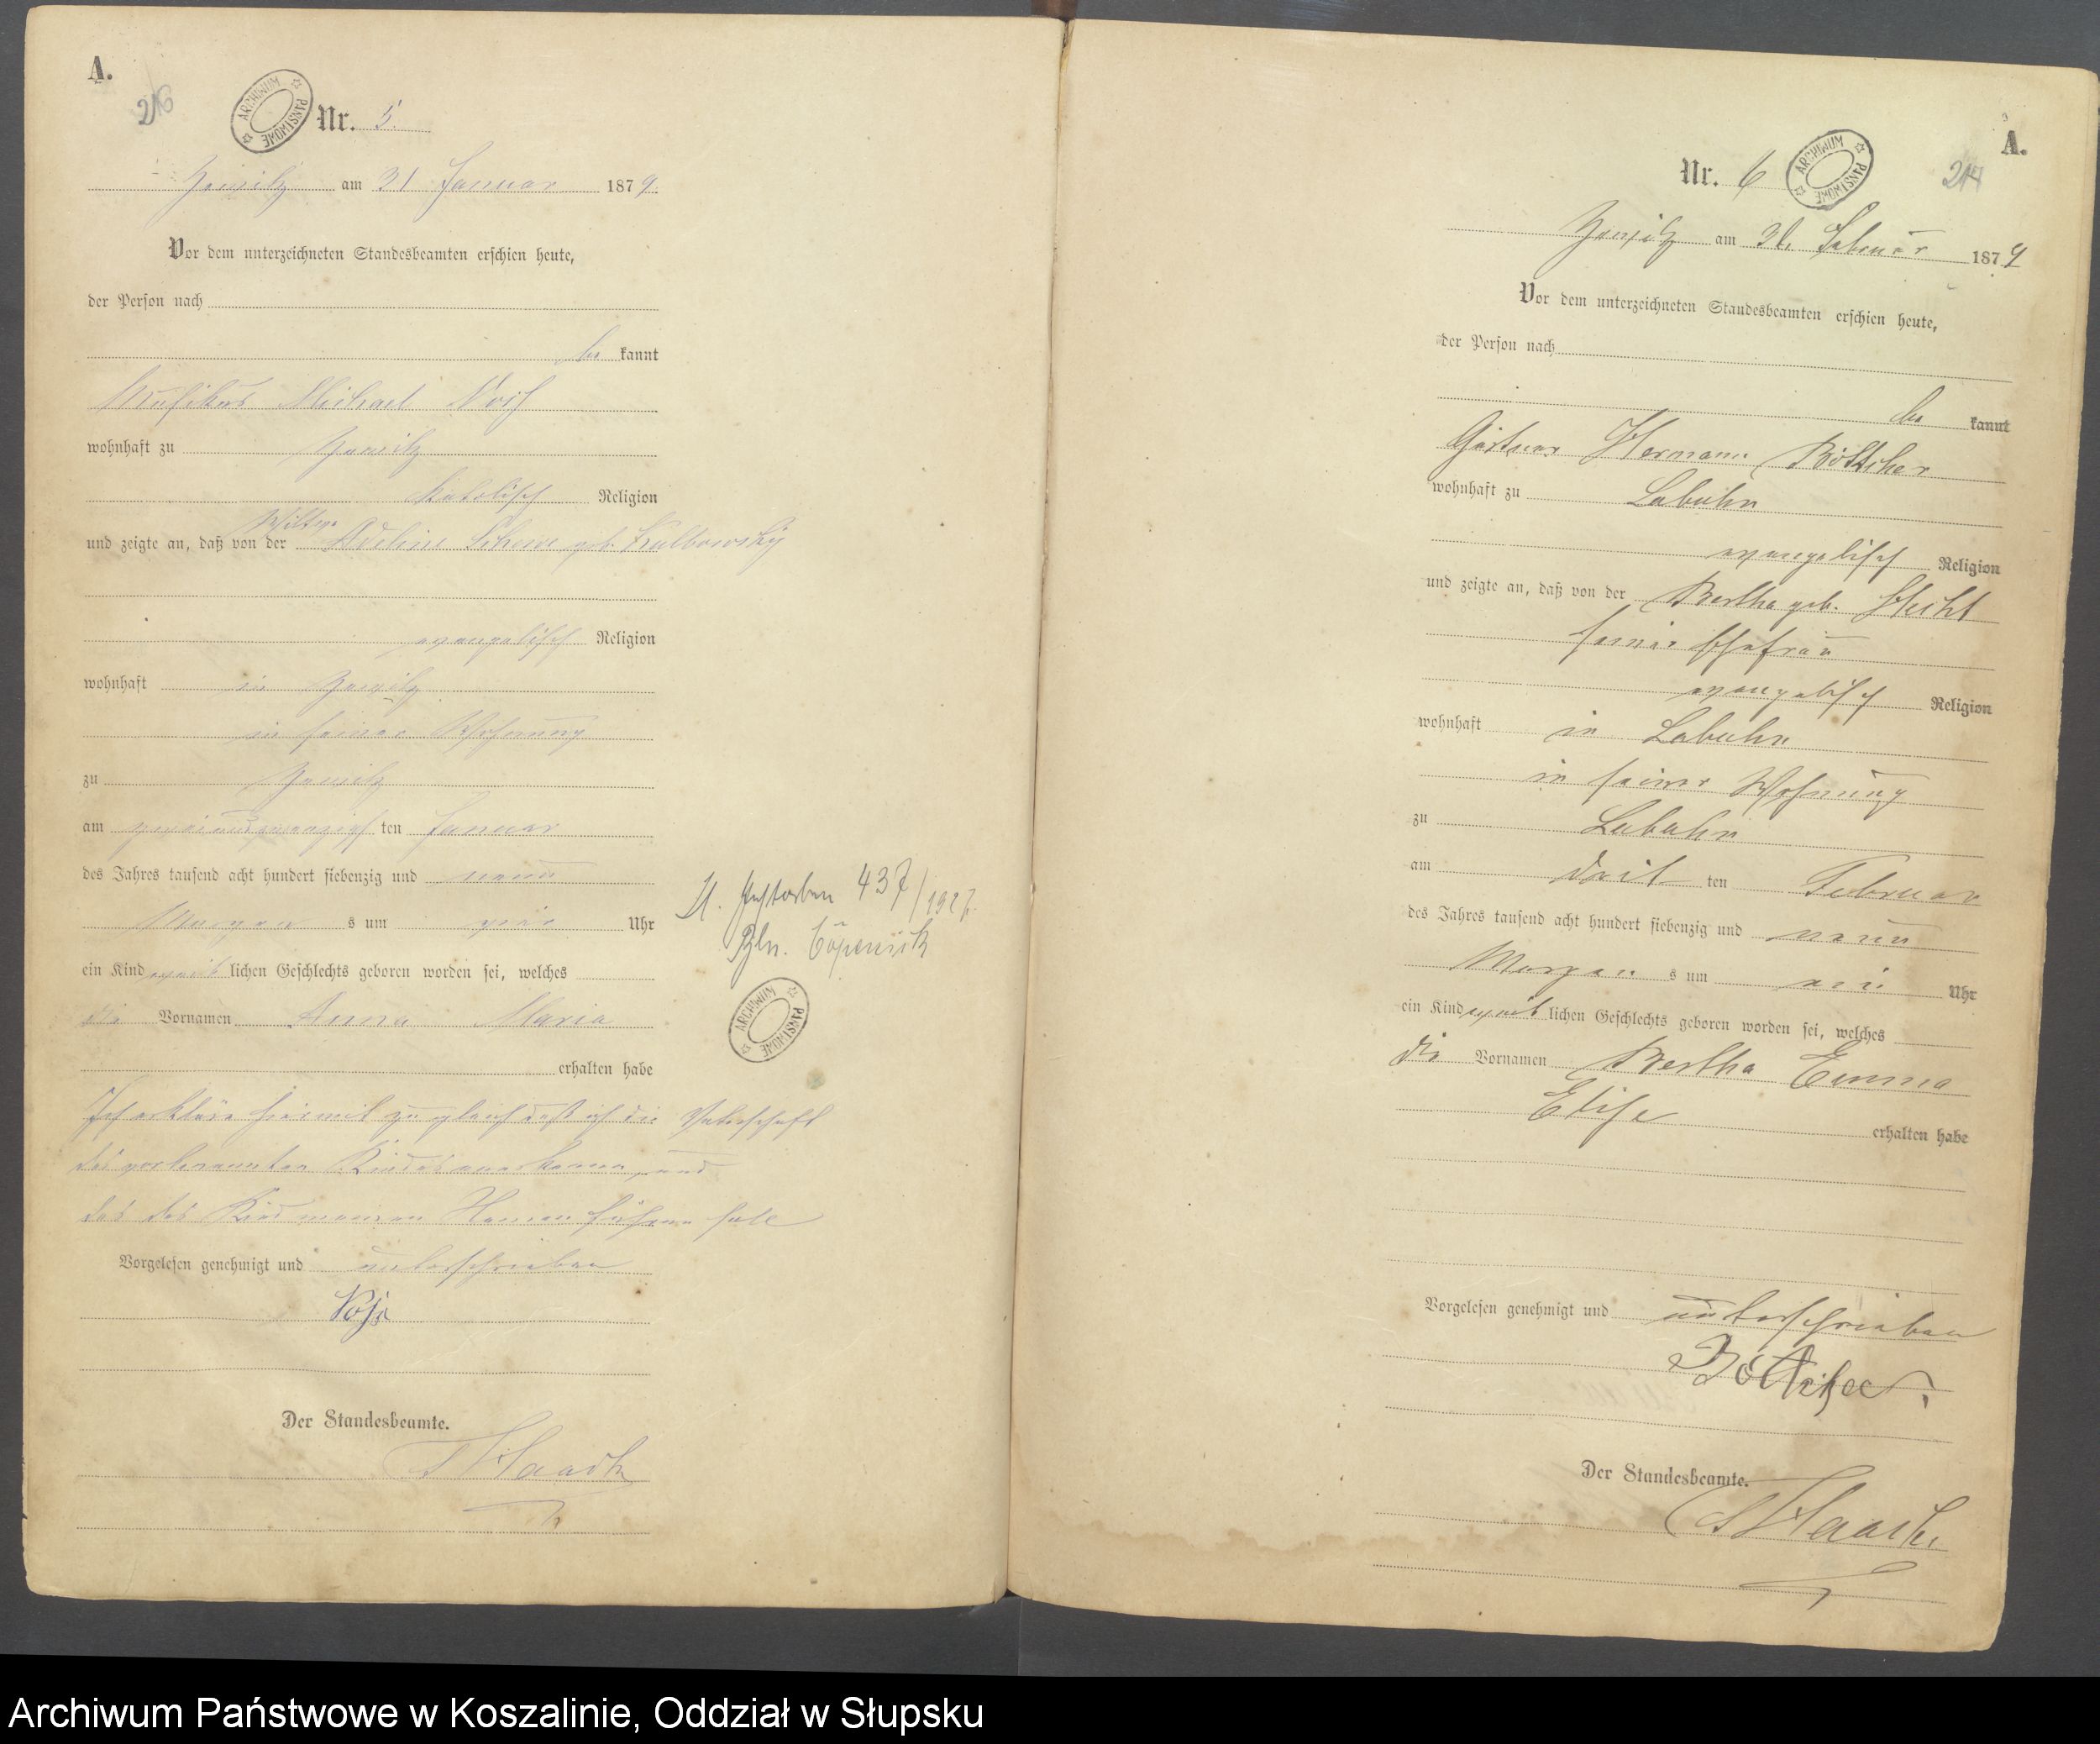 A.
216
ARCHIWUM PAŃSTWOWE
Nr. 5.
am 31 Januar 1879.
Vor dem unterzeichneten Standesbeamten erschien heute,
der Person nach
be kannt
Musikus Michael
wohnhaft zu
katolisch Religion
Wittwe
und zeigte an, daß von der Adeline geb. Kulbowsky
evangelisch Religion
wohnhaft in
in seiner Wohnung
zu
am zweiundzwanzigsten Januar
des Jahres tausend acht hundert siebenzig und neun
Morgen s um Uhr
ein Kind weib lichen Geschlechts geboren worden sei, welches
die Vornamen Anna Maria
erhalten habe
Ich erkläre hiermit zugleich daß ich die Vaterschaft
des vorbenannten Kindes anerkenne und
das das Kind meinen Namen führen soll
Vorgelesen genehmigt und unterschrieben
Der Standesbeamte.
Haack
gestorben 437/1927.
Bln. Cöpenick
ARCHIWUM PAŃSTWOWE
A.
217
Nr. 6
ARCHIWUM PAŃSTWOWE
am Februar 1879
Vor dem unterzeichneten Standesbeamten erschien heute,
der Person nach
be kannt
Gärtner Hermann Böttcher
wohnhaft zu Labuhn
evangelisch Religion
und zeigte an, daß von der Bertha geb. Hecht
seiner Ehefrau
evangelisch Religion
wohnhaft in Labuhn
in seiner Wohnung
zu Labuhn
am drit ten Februar
des Jahres tausend acht hundert siebenzig und neun
Morgen s um Uhr
ein Kind weib lichen Geschlechts geboren worden sei, welches
die Vornamen Bertha Emma
Elise erhalten habe
Vorgelesen genehmigt und unterschrieben
Böttcher.
Der Standesbeamte.
Haack
Archiwum Państwowe w Koszalinie, Oddział w Słupsku